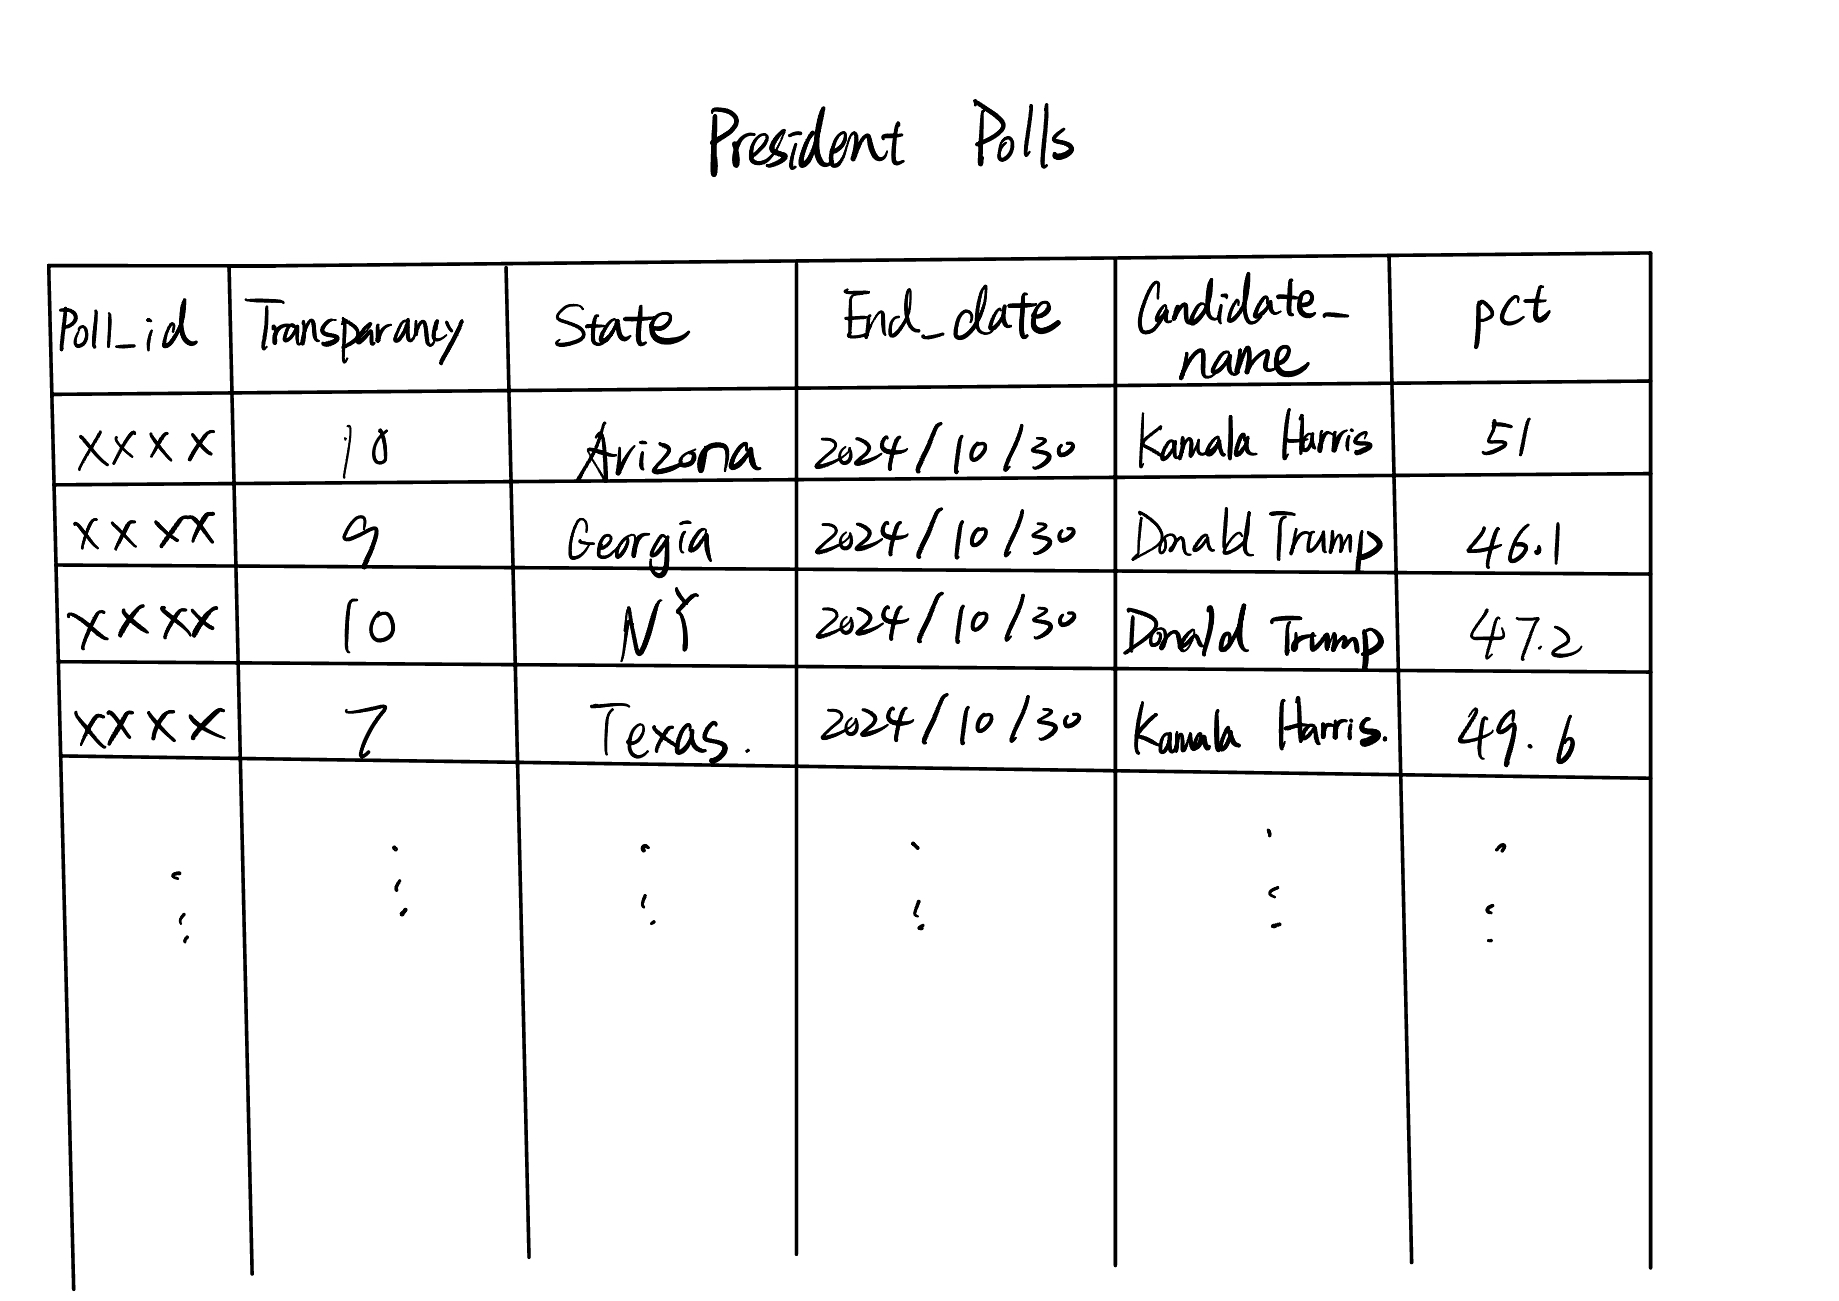 President Polls
Poll_id Transparancy State End_date Candidate_ pct
name
xxxx 10 Arizona 2024/10/30 Kamala Harris 51
xxxx 9 Georgia 2024/10/30 Donald Trump 46.1
xxxx 10 NY 2024/10/30 Donald Trump 47.2
xxxx 7 Texas. 2024/10/30 Kamala Harris. 49.6